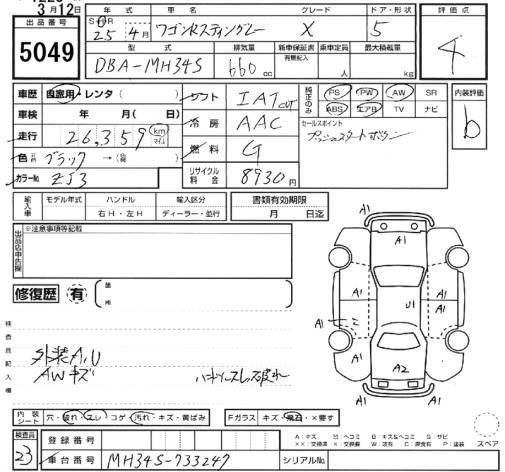 3月12日
出品番号 年式 車名 グレード ドア・形状 評価点
5049 S・H・R 25年 4月 ワゴンRスティングレー X 5 4
型式 排気量 新車保証書 乗車定員 最大積載量
有無記入
DBA-MH34S 660cc 人 kg
車歴 自家用・レンタ( ) シフト IAT 純正のみ PS PW AW SR 内装評価
車検 年 月( 日) 冷房 AAC ABS エアB TV ナビ b
走行 26,359 km マイル セールスポイント
プッシュスタートボタン
色 元色 ブラック →(色替 ) 燃料 G
カラーNo. ZJ3 リサイクル料金 8930円
輸入車 モデル年式 ハンドル 輸入区分 書類有効期限
右H・左H ディーラー・並行 月 日迄
出品店申告欄 ※注意事項等記載
修復歴 有 ( 箇所 )
A1
A1
A1 A1
A1 U1 A1
A1 A1
A2
検査員記入欄
外装A,U
AWキズ
内装シート 穴・破れ・スレ・コゲ・汚れ・キズ・黄ばみ Fガラス キズ・飛石・×要す
A：キズ U：ヘコミ B：キズ&ヘコミ S：サビ
××：交換済 X：交換 W：波有 C：腐食有 P：塗装 スペア
検査員 23 登録番号
車台番号 MH34S-733247 シリアルNo.